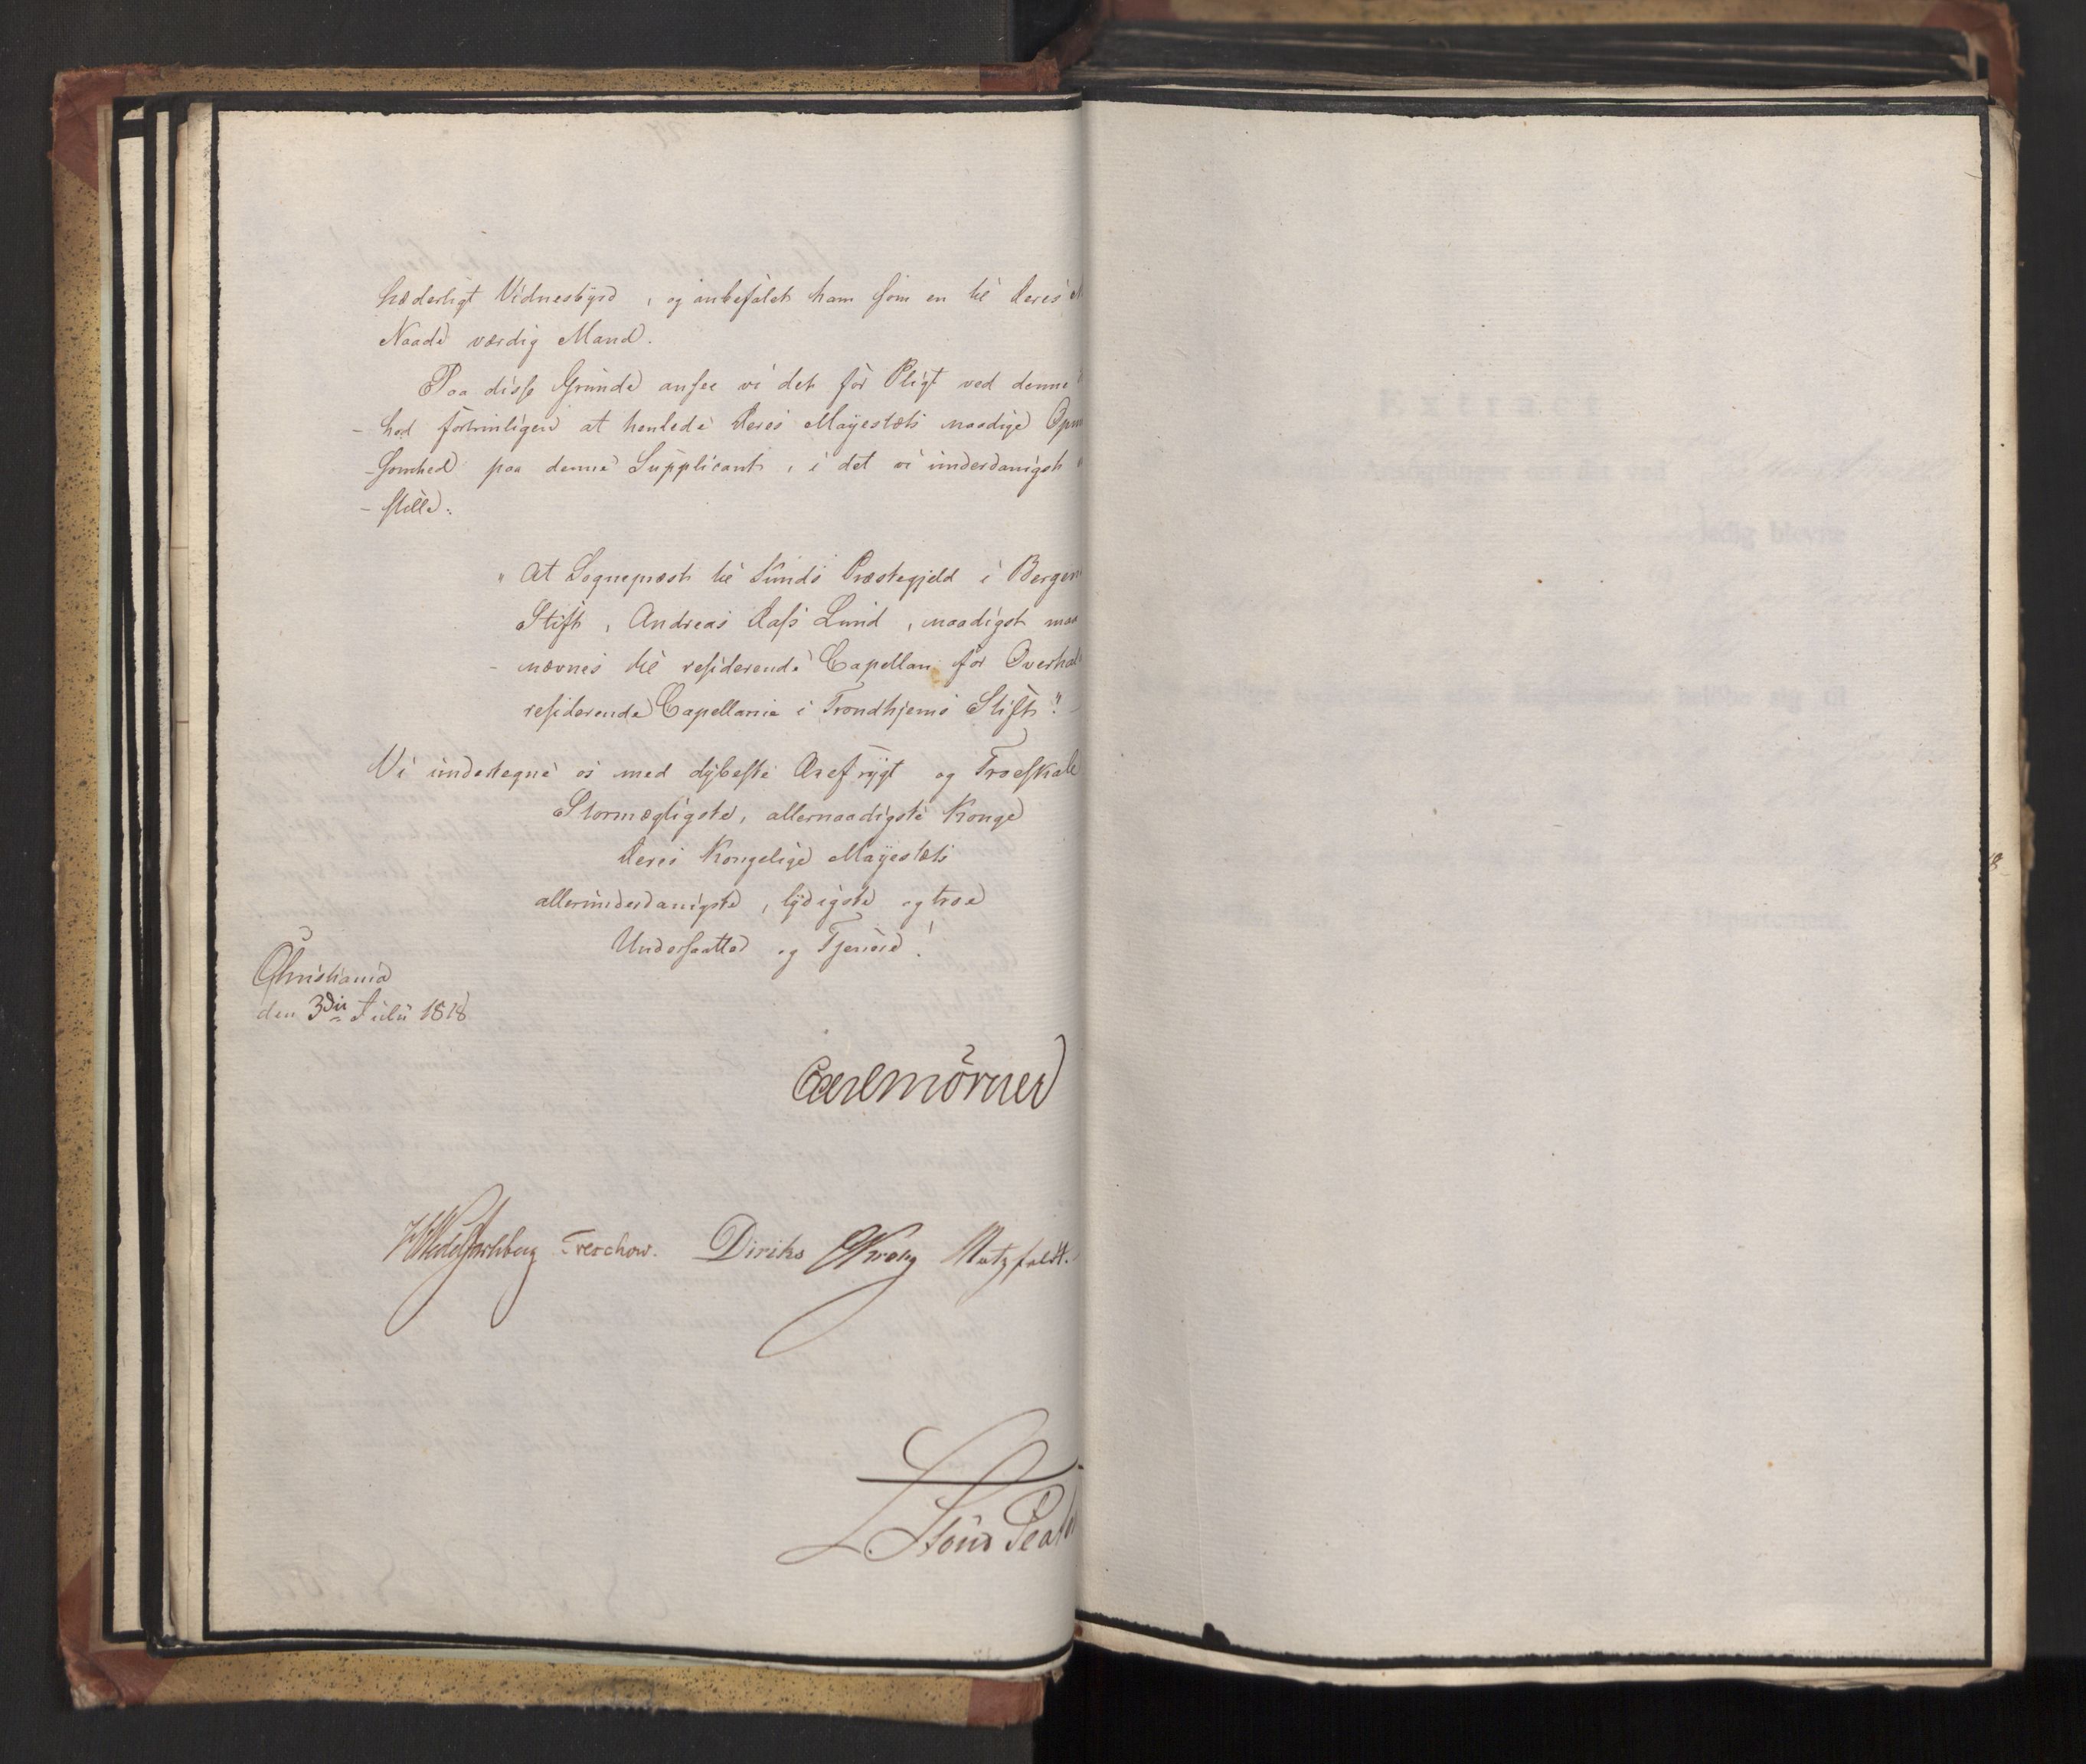 hæderligt Vidnesbyrd, og anbefalet ham som en til Deres
Naade værdig Mand.
Paa disse Grunde ansee vi det for Pligt ved denne
- hed fortrinligen at henlede Deres Majestæts naadige Opm
- somhed paa denne Supplicant, i det vi underdanigst
- stille:
"At Sognepræst til Sunds Præstegjeld i Bergens
Stift, Andreas Dass Lund, naadigst maa
- nævnes til residerende Capellan for Overhal
residerende Capellanie i Trondhjems Stift."
Vi undertegne os med dybeste Ærefrygt og Troeskab
Stormægtigste, allernaadigste Konge
Deres Kongelige Majestæts
allerunderdanigste, lydigste og troe
Undersaatter og Tjenere!
Christiania
den 3die Julii 1818
Carl Mörner
HWedel Jarlsberg Treschow. Diriks Krohg Motzfeldt.
Extract
ledig blevne
sig til
Departement.